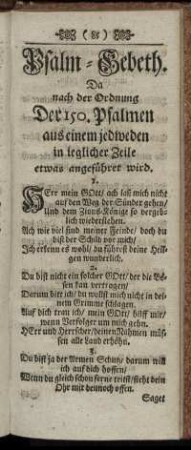 ( 88 )
Psalm-Gebeth.
Da
nach der Ordnung
Der 150. Psalmen
aus einem jedweden
in ieglicher Zeile
etwas angeführet wird.
1.
HErr mein GOtt, ach laß mich nicht
auf den Weg der Sünder gehen/
Und dem Zions-Könige so vergeb-
lich wiederstehen.
Ach wie viel sind meiner Feinde/ doch du
bist der Schild vor mich/
Ich erkenn es wohl/ du führest deine Heili-
gen wunderlich.
2.
Du bist nicht ein solcher GOtt/ der die Bö-
sen kan vertragen/
Darum bitt ich/ du wollst mich nicht in dei-
nem Grimme schlagen.
Auf dich trau ich/ mein GOtt/ hilff mir/
wenn Verfolger um mich gehn.
HErr und Herrscher/ deinen Nahmen müs-
sen alle Land erhöhn.
3.
Du bist ja der Armen Schutz/ darum will
ich auf dich hoffen/
Wenn du gleich schon ferne trittst/ steht dein
Ohr mir dennoch offen.
Saget